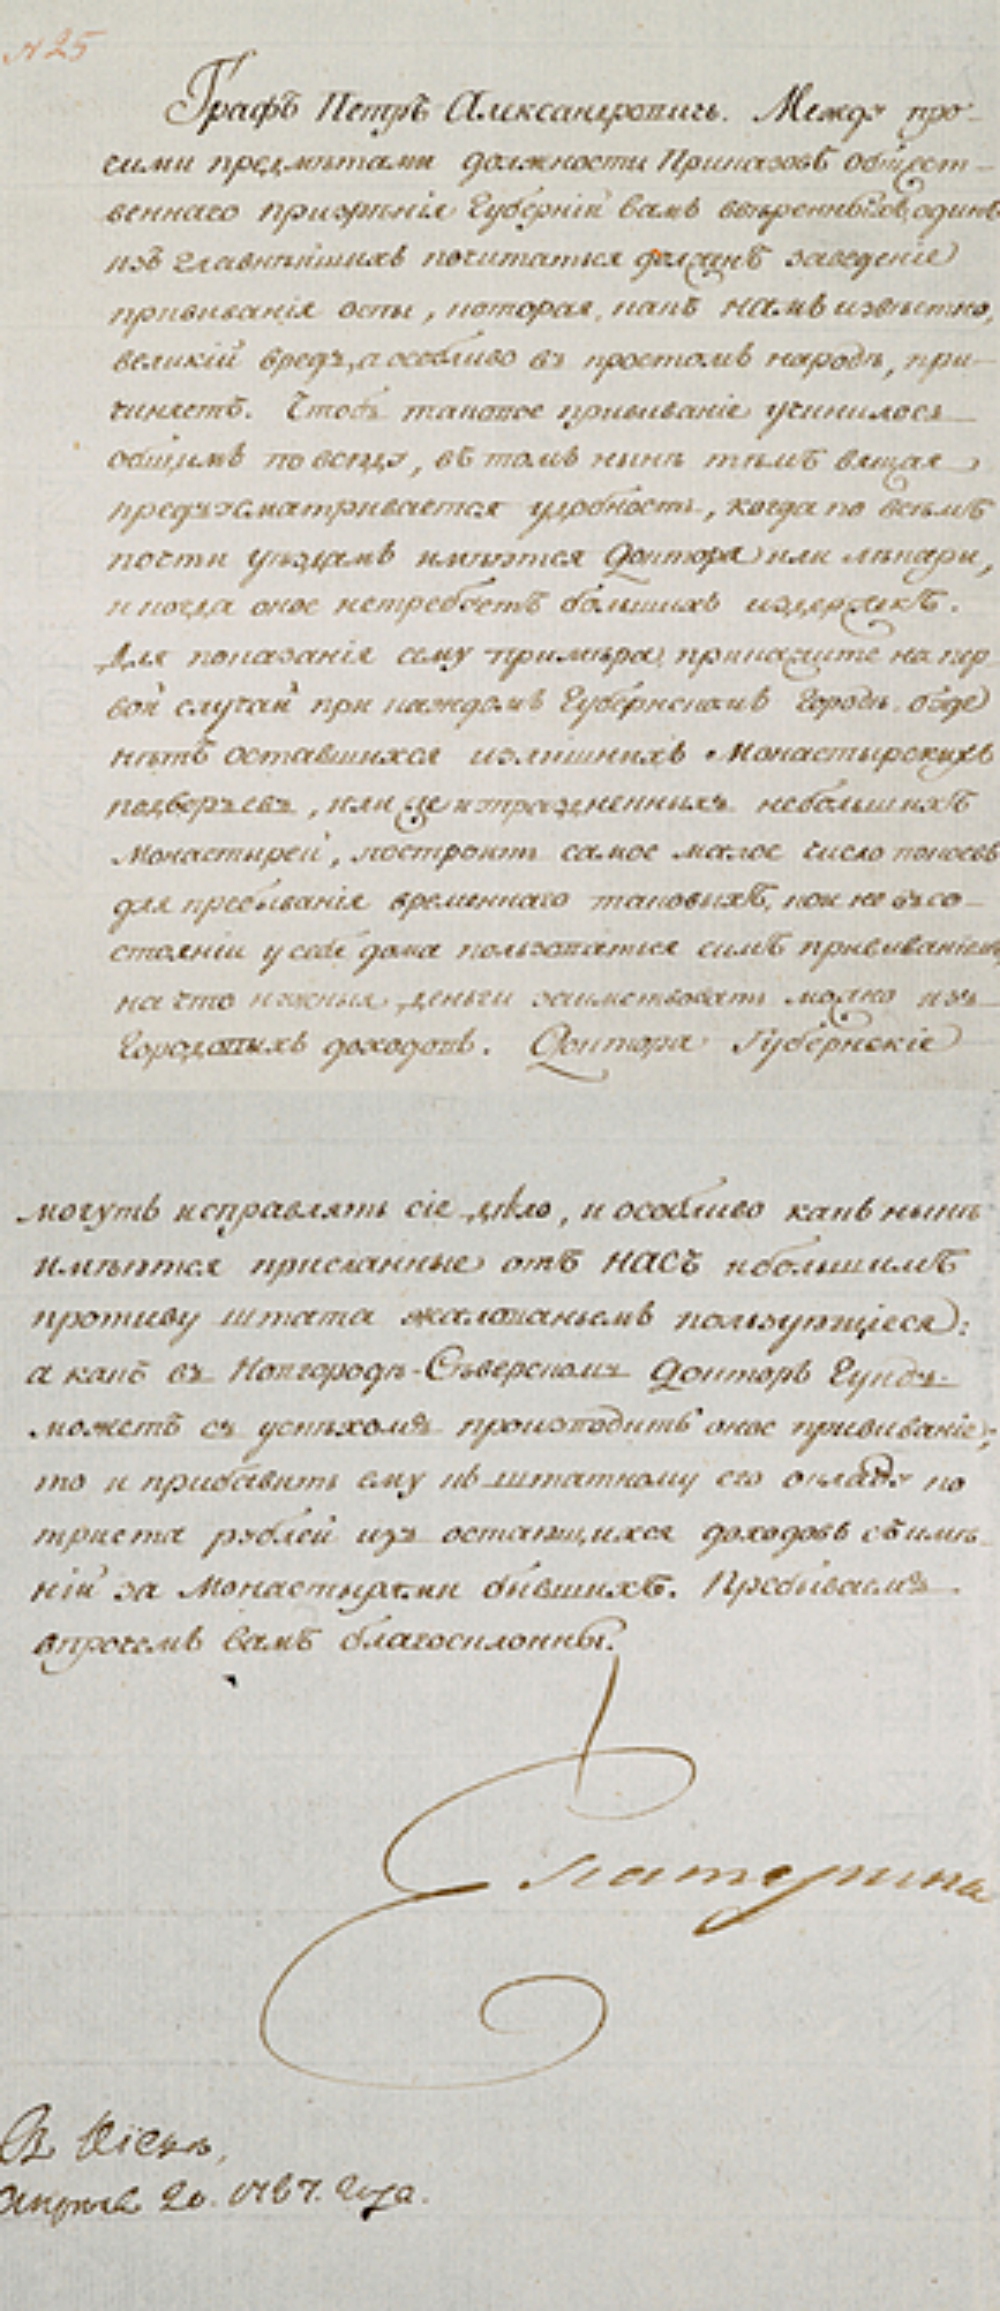 № 25
Графъ Петръ Александровичь. Между про-
чими предмѣтами должности Приказовъ общест-
веннаго призрѣнія Губерній вамъ ввѣренныхъ, одинъ
изъ главнѣйшихъ почитаться долженъ заведеніе
прививанія оспы, которая, какъ намъ извѣстно,
великій вредъ, а особливо въ простомъ народѣ, при-
чиняетъ. Чтобъ таковое прививаніе учинилося
общимъ повсюду, въ томъ нынѣ тѣмъ вящая
предъусматривается удобность, когда по всѣмъ
почти уѣздамъ имѣются Доктора или лѣкари,
и когда оное нетребуетъ большихъ издержекъ.
Для показанія сему примѣра, прикажите на пер
вой случай при каждомъ Губернскомъ Городѣ, буде
нѣтъ оставшихся излишнихъ Монастырскихъ
подворьевъ, или где и упраздненныхъ небольшихъ
Монастырей, построить самое малое число покоевъ
для пребыванія временнаго таковыхъ, кои не въ со-
стояніи у себя дома пользоваться симъ прививаніемъ,
на что нужныя деньги заимствовать можно изъ
Городовыхъ доходовъ. Доктора Губернскіе
могутъ исправлять сіе дѣло, и особливо какъ нынѣ
имѣются присланные отъ НАСЪ и большимъ
противу штата жалованьемъ пользующіеся:
а какъ въ Новгородѣ-Сѣверскомъ Докторъ Гундъ
можетъ съ успѣхомъ производить оное прививаніе;
то и прибавить ему къ штатному его окладу по
триста рублей изъ оставшихся доходовъ съ имѣ-
ній за Монастырями бывшихъ. Пребываемъ
впрочемъ вамъ благосклонны.
Екатерина
Въ Кіевѣ,
Апрѣля 20. 1787. Года.